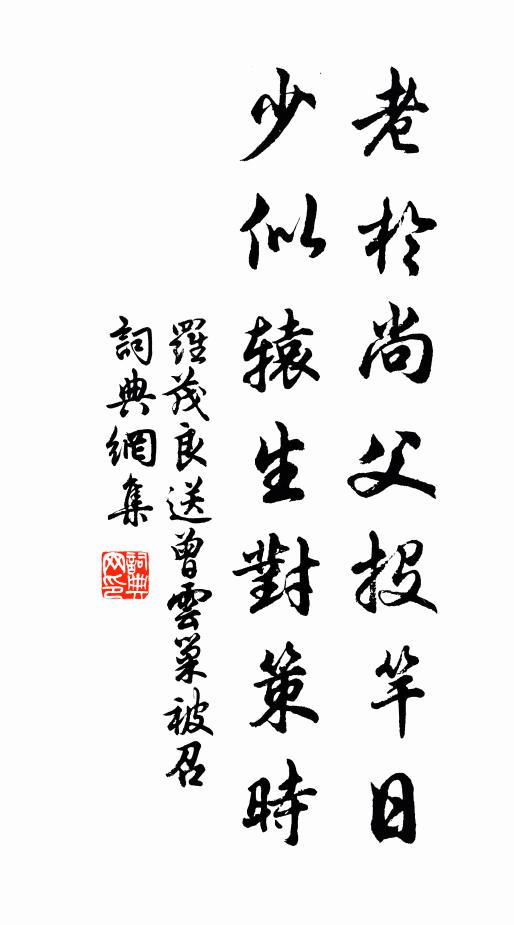 老於尚父投竿日
少似辕生對策時
羅茂良送曾雲巢被召
詞典網集
詞典
网印